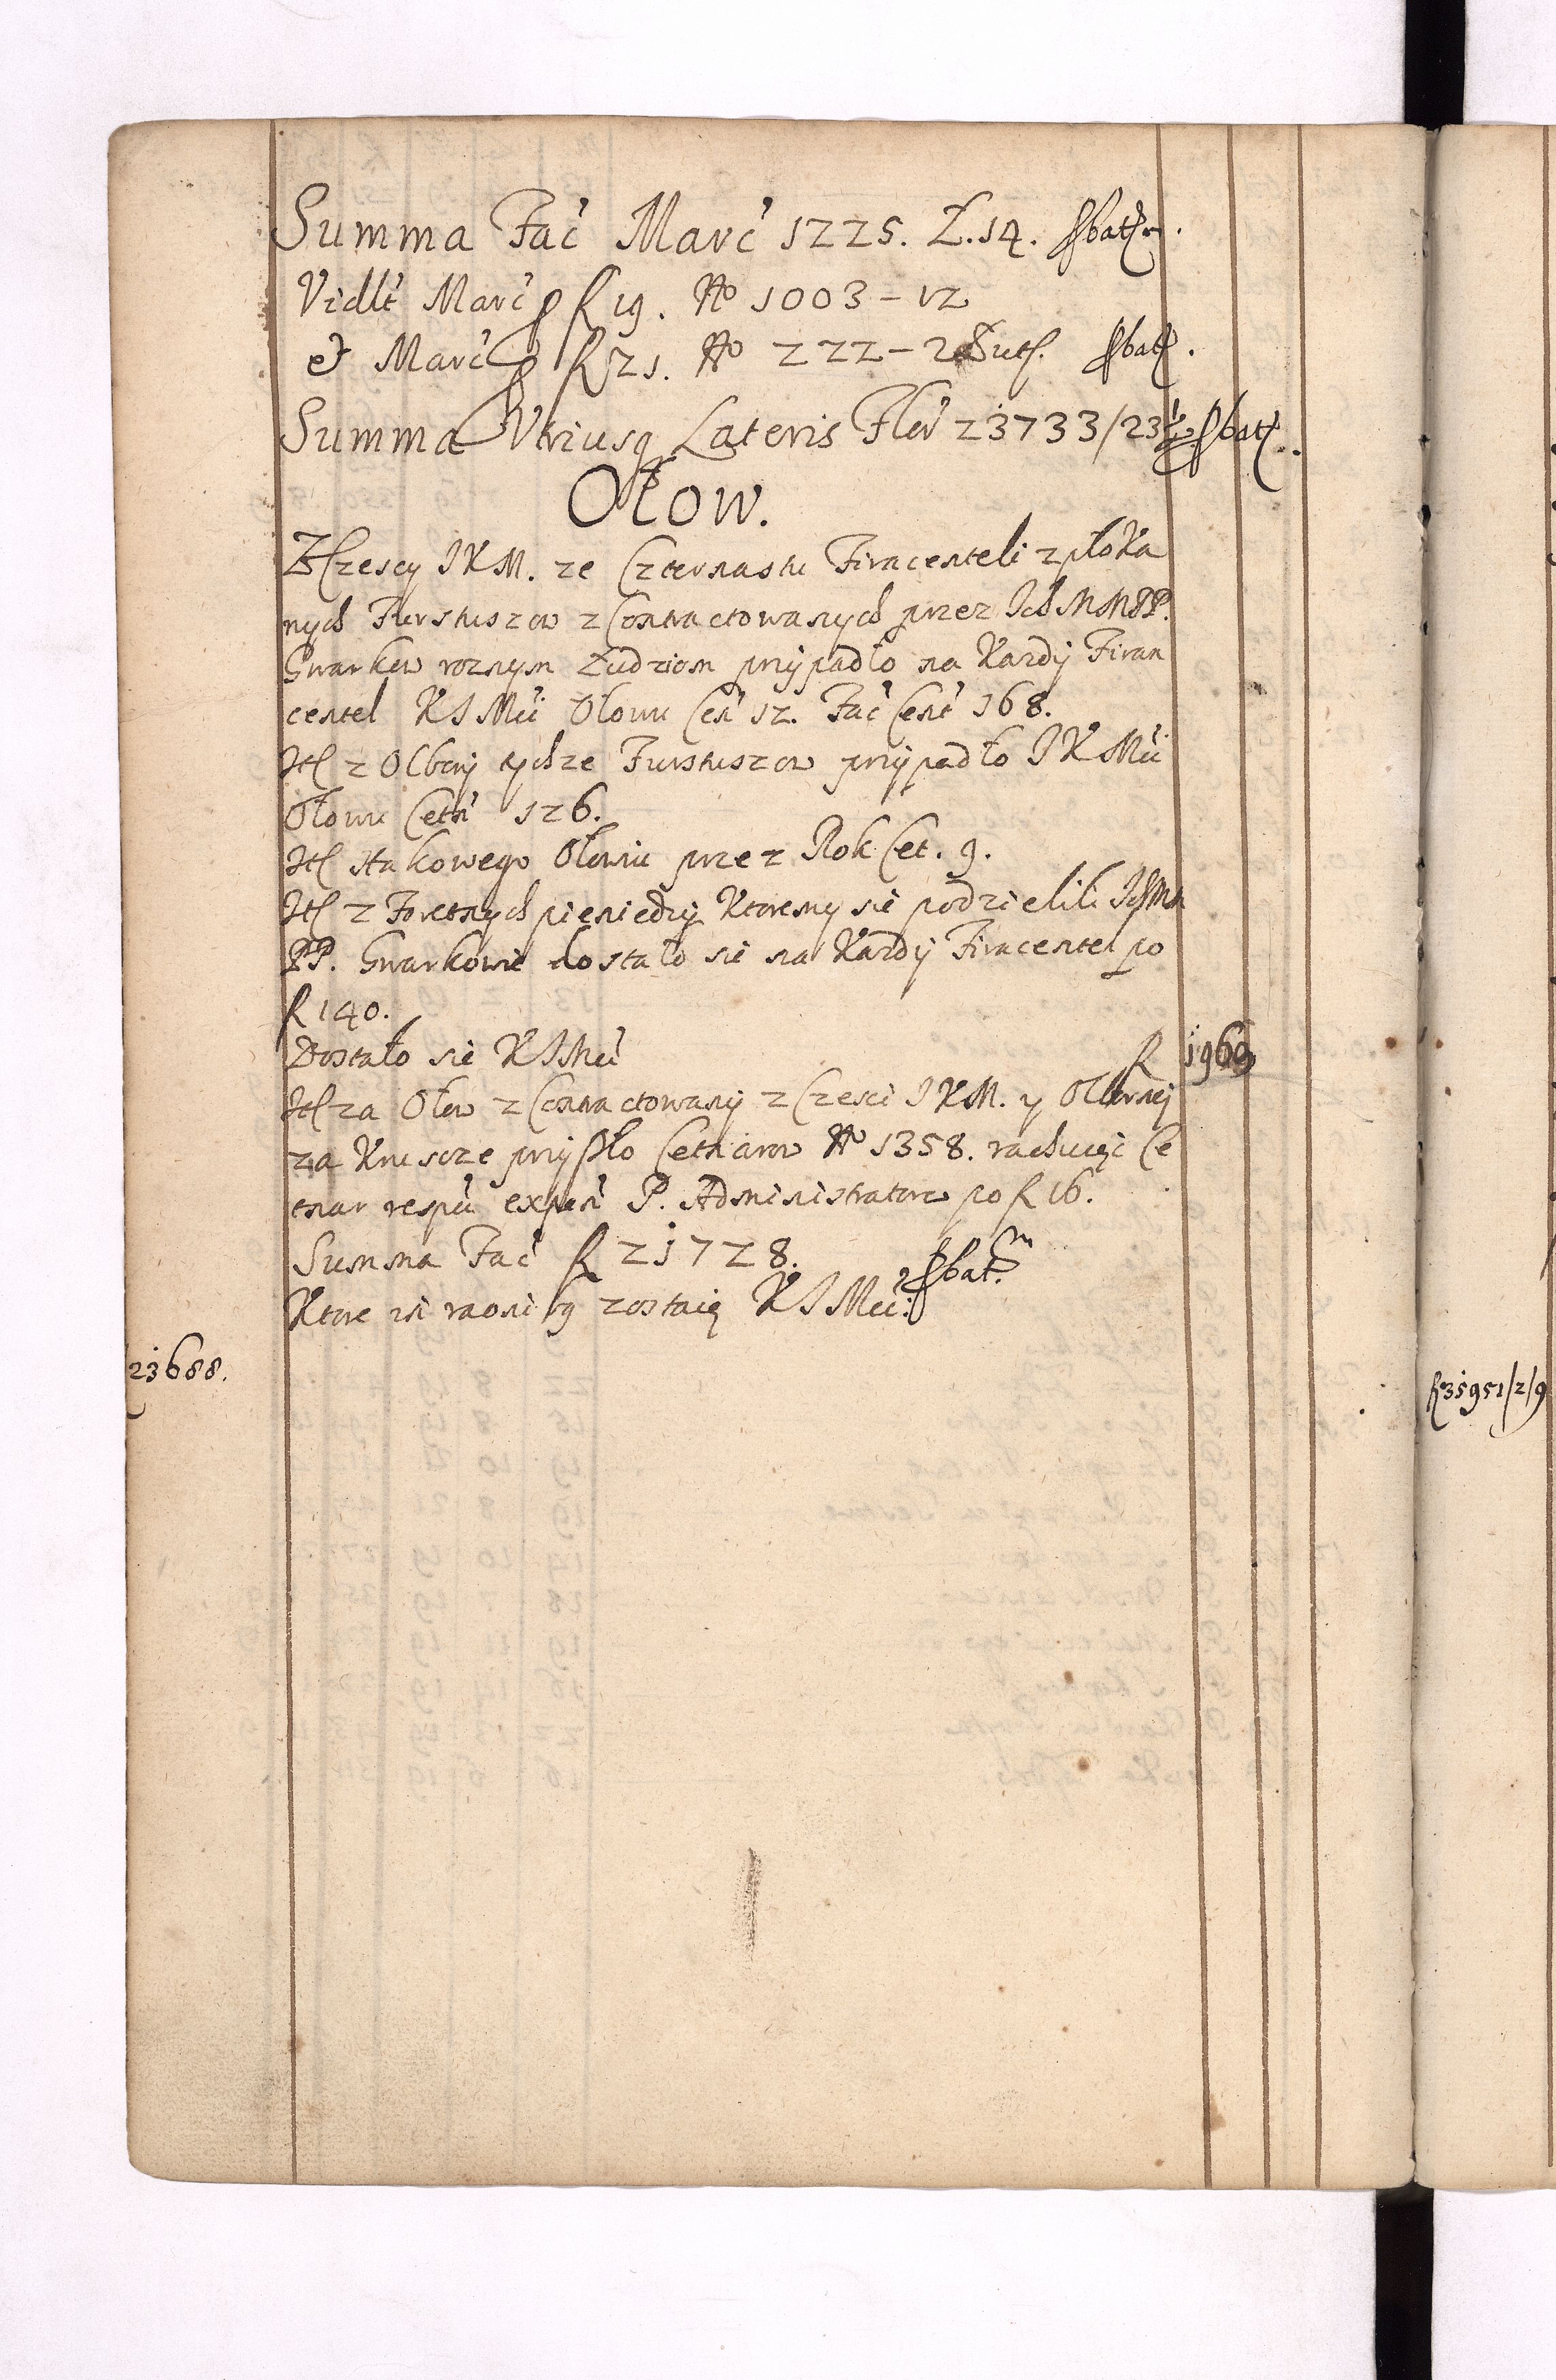 Summa Fac̃ Marc̃ 1225. Ł. 14. ꝓbat̃.
Vidlt̃ Marc̃ ꝑ f 19. No 1003 - 12
et Marc̃ ꝑ f 21. No 222 - 2 ꝓbat̃.
Summa Vtriusq Lateris Flor̃ 23733/23½ ꝓbat̃.
Ołow.
Z Czescy JKM. ze Czternastu Firacenteli z płoka
nych Furstuszow z Contractowanych przez Ich MM PP.
Gwarkow roznym Ludziom przypadło na Kazdy Firan
centel KJMci Ołowu Cen̄ 12. Fac̃ Cent̃ 168.
It z Olbory tychze Furstuszow przypadło JKMci
Ołowu Cetn̄ 126.
It stakowego Ołowiu przez Rok Cet. 9.
It z Foretnych pieniedzy Ktoremy sie podzielili Ich Mm
PP. Gwarkowie dostało sie na Kazdy Firacentel po
f 140.
Dostało sie KJMci f 1960
It za Ołow z Contractowany z Czesci JKM. y Olborny
za Kruscze przyszło Cetnarow No 1358. rachuięc Ce
tnar respū expen̄ P. Administratora po f 16.
Summa Fac̃ f 21728. ꝓbat̃.
Ktore in raonibg zostaię KJMci.
21688.
f 35951/2/9